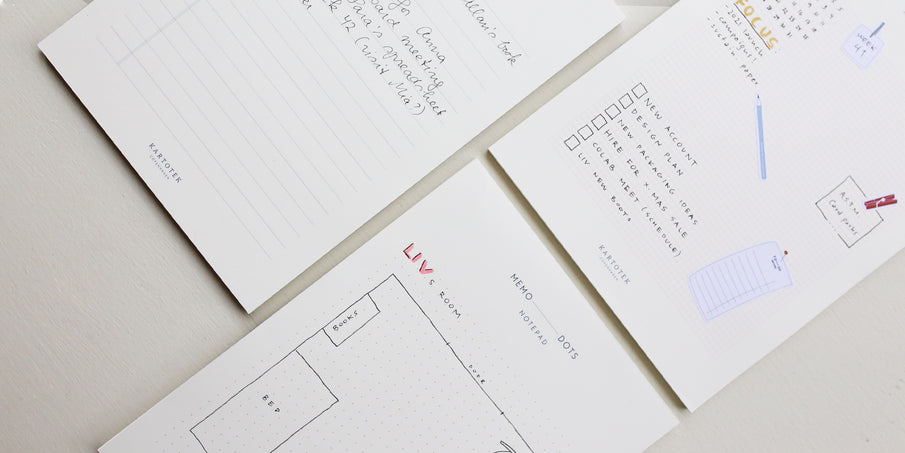 book
Anna
meeting
spreadsheet
42 (visit Mia?)
KARTOTEK
COPENHAGEN
FOCUS
2021 launch
campaign!
sustain. paper
WEEK
41
NEW ACCOUNT
DESIGN PLAN
NEW PACKAGING IDEAS
HIRE FOR X-MAS SALE
COLAB MEET (SCHEDULE)
LIV NEW BOOTS
KARTOTEK
COPENHAGEN
LIV'S ROOM
MEMO DOTS
NOTEPAD
BOOKS
BED